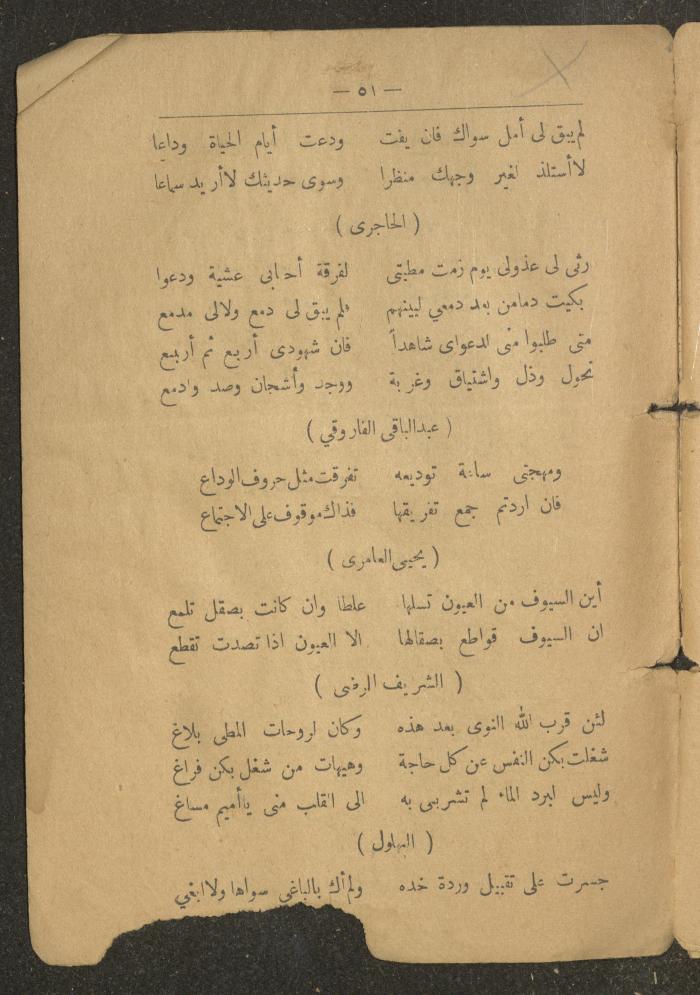 — ٥١ —
لم يبق لى أمل سواك فان يفت ودعت أيام الحياة وداعا
لا أستلذ لغير وجهك منظرا وسوى حديثك لا أريد سماعا
( الحاجرى )
رثى لى عذولى يوم زمت مطيتى لفرقة أحبابى عشية ودعوا
بكيت دما من بعد دمعي لبينهم فلم يبق لى دمع ولا لى مدمع
متى طلبوا منى لدعواى شاهداً فان شهودى أربع ثم أربع
نحول وذل واشتياق وغربة ووجد وأشجان وصد وادمع
( عبدالباقى الفاروقي )
ومهجتى ساعة توديعه تفرقت مثل حروف الوداع
فان اردتم جمع تفريقها فذاك موقوف على الاجتماع
( يحيى العامرى )
أين السيوف من العيون تسلها غلطا وان كانت بصقل تلمع
ان السيوف قواطع بصقالها الا العيون اذا تصدت تقطع
( الشريف الرضى )
لئن قرب الله النوى بعد هذه وكان لروحات المطى بلاغ
شغلت بكن النفس عن كل حاجة وهيهات من شغل بكن فراغ
وليس لبرد الماء لم تشربى به الى القلب منى يا أميم مساغ
( البهلول )
جسرت على تقبيل وردة خده ولم أك بالباغى سواها ولا ابغي